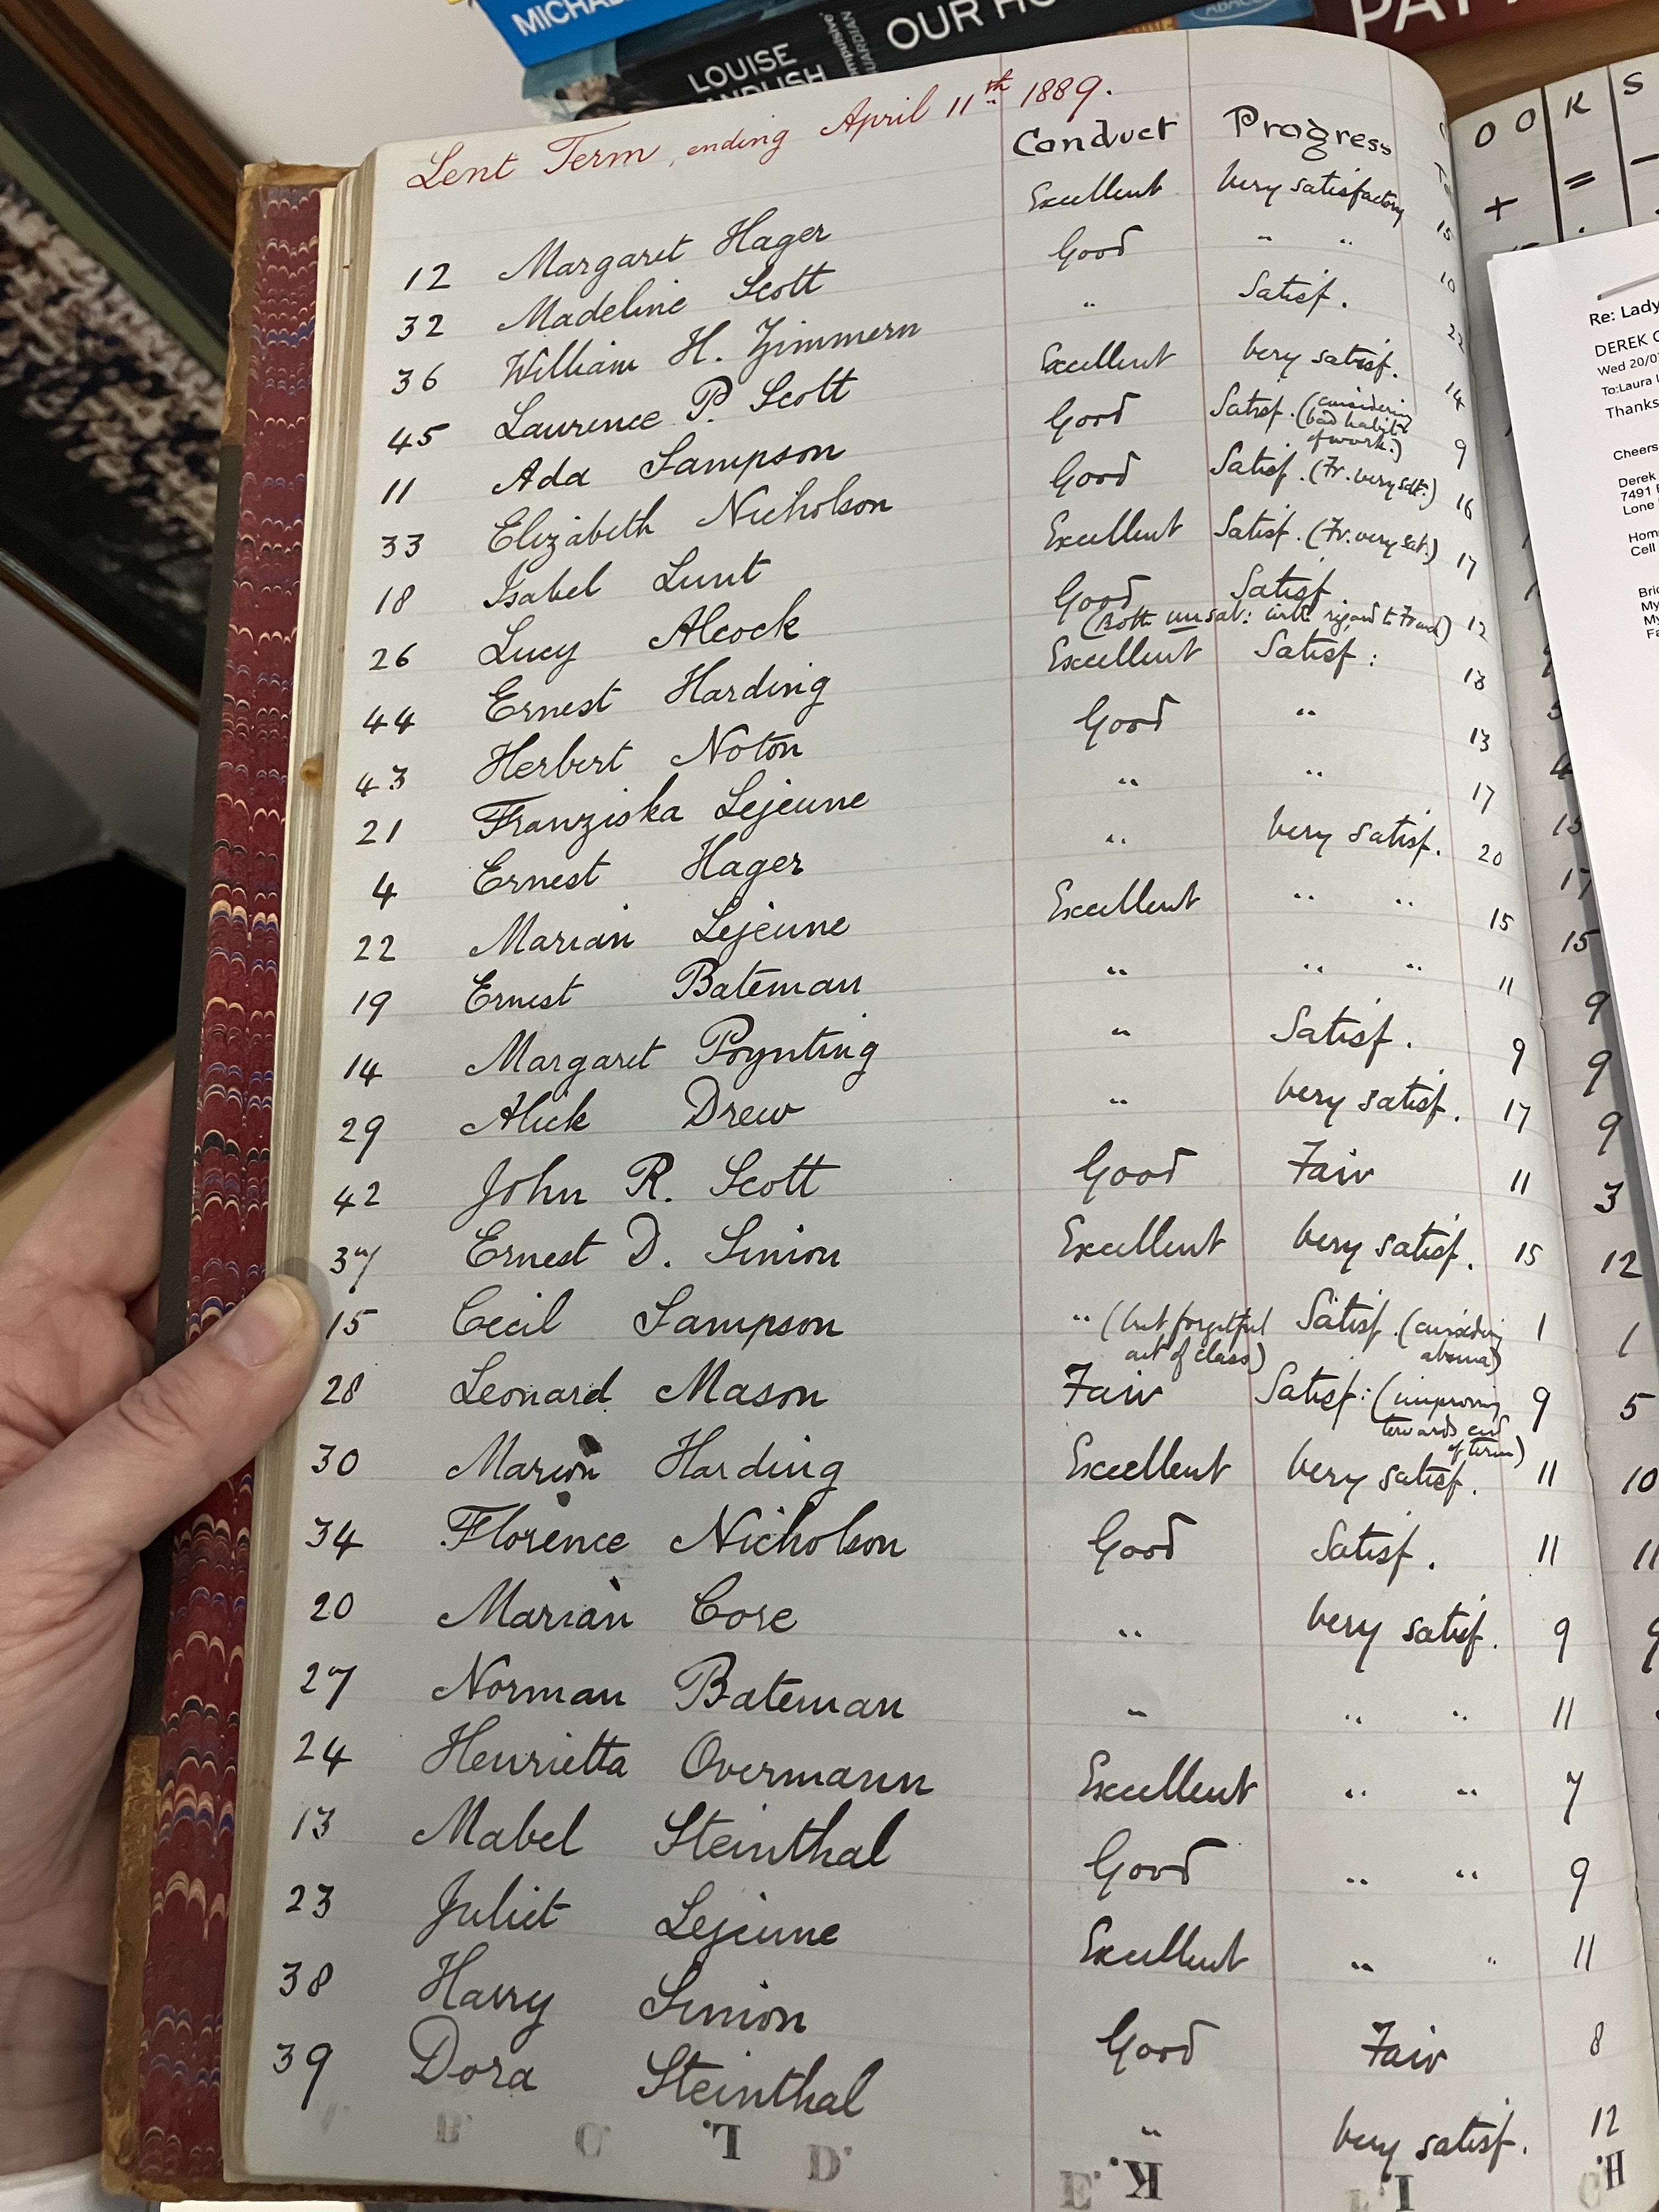 MICHAEL
LOUISE
OUR HO
Lent Term, ending April 11th 1889.
Conduct Progress
12 Margaret Hager Excellent Very satisfactory 15
32 Madeline Scott Good " " 10
36 William H. Zimmern " Satisf. 22
45 Laurence P. Scott Excellent Very satisf. 14
11 Ada Sampson Good Satisf. (considering bad habits of work.) 9
33 Elizabeth Nicholson Good Satisf. (Fr. very sat.) 16
18 Isabel Lunt Excellent Satisf. (Fr. very sat.) 17
26 Lucy Alcock Good Satisf 12
(Both unsat: with regard to French)
44 Ernest Harding Excellent Satisf: 13
43 Herbert Noton Good " 13
21 Franziska Lejeune " " 17
4 Ernest Hager " Very satisf. 20
22 Marian Lejeune Excellent " " 15
19 Ernest Bateman " " " 11
14 Margaret Poynting " Satisf. 9
29 Alick Drew " Very satisf. 17
42 John R. Scott Good Fair 11
37 Ernest D. Simon Excellent Very satisf. 15
15 Cecil Sampson " (but forgetful out of class) Satisf. (considering absence) 1
28 Leonard Mason Fair Satisf: (improving towards end of term) 9
30 Marion Harding Excellent Very satisf. 11
34 Florence Nicholson Good Satisf. 11
20 Marian Core " Very satisf. 9
27 Norman Bateman " " " 11
24 Henrietta Overmann Excellent " " 7
13 Mabel Steinthal Good " " 9
23 Juliet Lejeune Excellent " " 11
38 Harry Simon Good Fair 8
39 Dora Steinthal " Very satisf. 12
O O K S
+ = -
15
17
15
9
9
9
3
12
1
5
10
11
Re: Lady
DEREK
Wed 20/0
To:Laura
Thanks
Cheers
Derek
7491
Lone
Hom
Cell
Bri
My
My
Fa